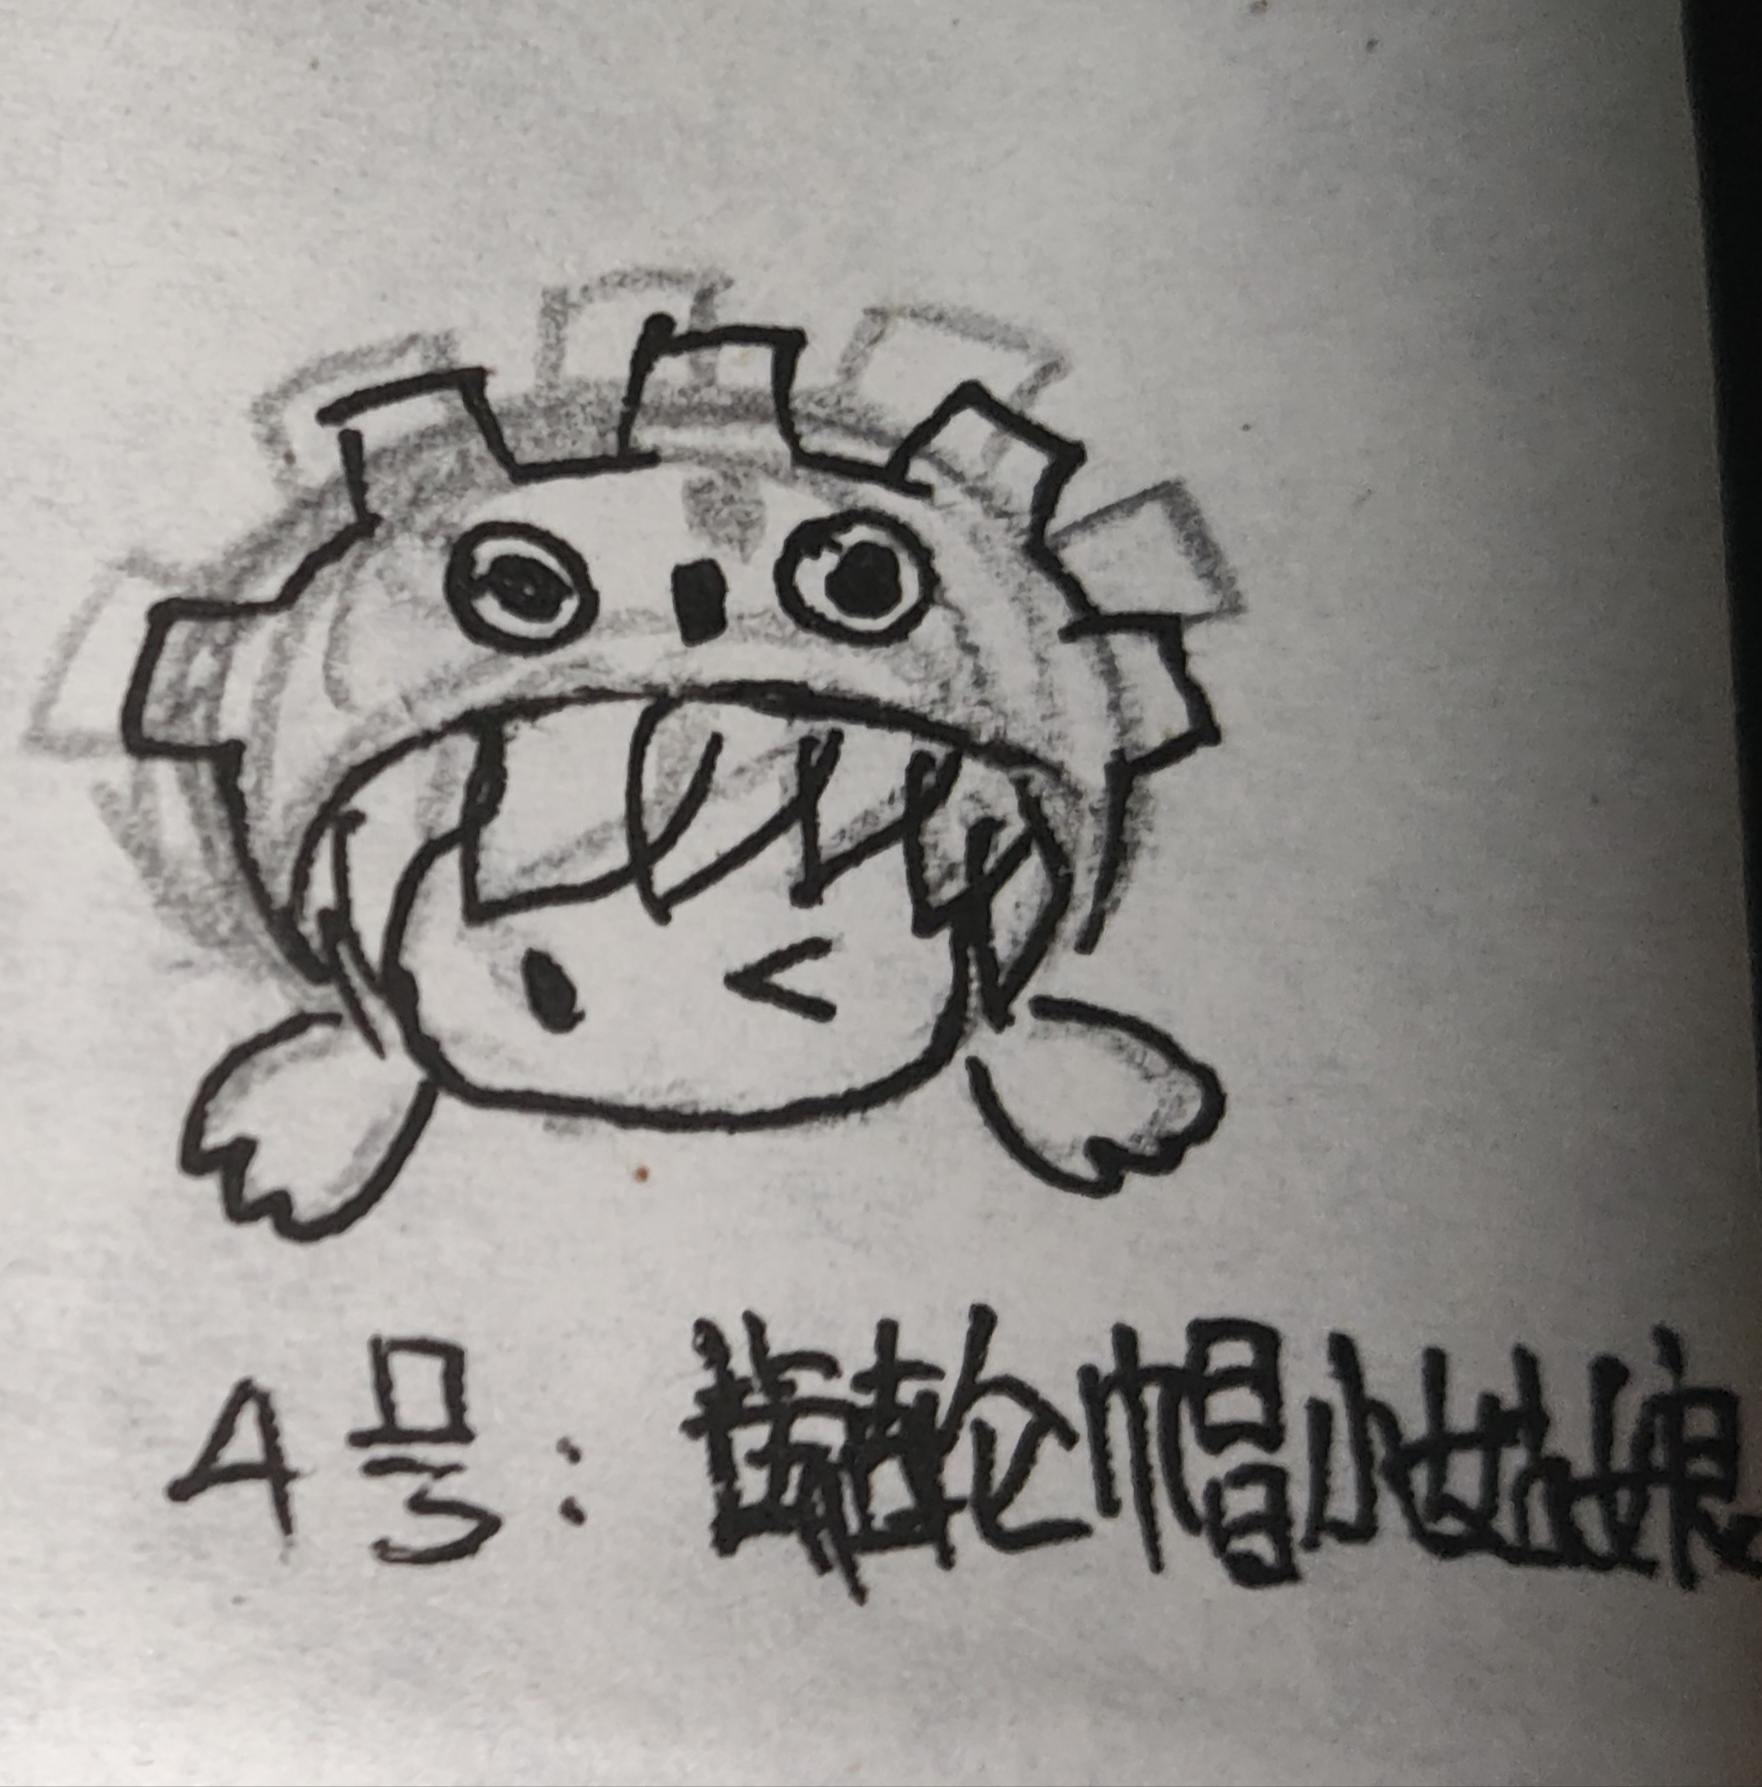 4号:齿轮帽小姑娘